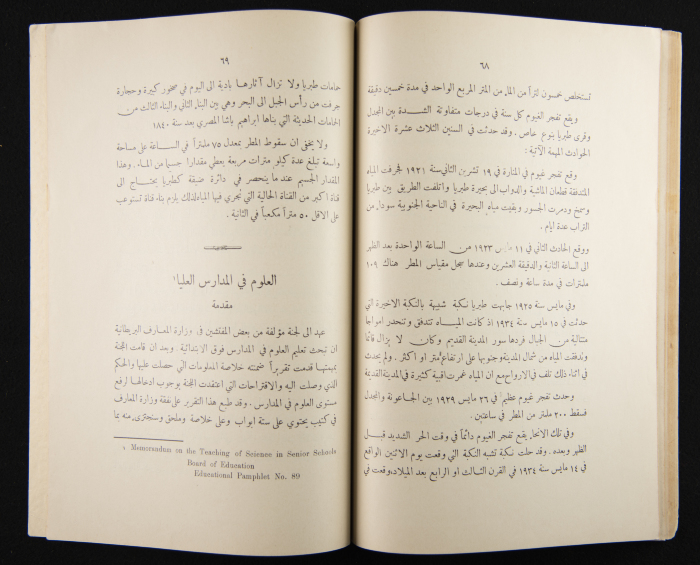 ٦٨
تستخلص خمسون لتراً من الماء من المتر المربع الواحد في مدة خمسين دقيقة
ويقع تفجر الغيوم كل سنة في درجات متفاوتة الشدة بين المجدل
وقرى طبريا بنوع خاص. وقد حدثت في السنين الثلاث عشرة الاخيرة
الحوادث المهمة الآتية:
وقع تفجر غيوم في المنارة في ١٩ تشرين الثاني سنة ١٩٢١ فجرفت المياه
المتدفقة قطعان الماشية والدواب الى بحيرة طبريا واتلفت الطريق بين طبريا
وسمخ ودمرت الجسور وبقيت مياه البحيرة في الناحية الجنوبية سوداء من
التراب عدة ايام.
ووقع الحادث الثاني في ١١ مارس ١٩٢٣ من الساعة الواحدة بعد الظهر
الى الساعة الثانية والدقيقة العشرين وعندها سجل مقياس المطر هناك ١٠٩
ملمترات في مدة ساعة ونصف.
وفي مايس سنة ١٩٢٥ جابهت طبريا نكبة شبيهة بالنكبة الاخيرة التي
حدثت في ١٥ مايس سنة ١٩٣٤ اذ كانت المياه تتدفق وتنحدر امواجا
متتالية من الجبال فردها سور المدينة القديم وكان لا يزال قائما
وتدفقت المياه من شمال المدينة وجنوبها على ارتفاع متر او اكثر. ولم يحدث
في اثناء ذلك تلف في الارواح مع ان المياه غمرت اقبية كثيرة في المدينة القديمة
وحدث تفجر غيوم عظيم في ٢٦ مايس ١٩٢٩ بين الجاعونة والمجدل
فسقط ٢٠٠ ملمتر من المطر في ساعتين.
وفي تلك الانحاء يقع تفجر الغيوم دائماً في وقت الحر الشديد قبل
الظهر وبعده. وقد حلت نكبة تشبه النكبة التي وقعت يوم الاثنين الواقع
في ١٤ مايس سنة ١٩٣٤ في القرن الثالث او الرابع بعد الميلاد، وقعت في
٦٩
حمامات طبريا ولا تزال آثارها بادية الى اليوم في صخور كبيرة وحجارة
جرفت من رأس الجبل الى البحر وهي بين البناء الثاني والبناء الثالث من
الحمامات الحديثة التي بناها ابراهيم باشا المصري بعد سنة ١٨٤٠
ولا يخفى ان سقوط المطر بمعدل ٧٥ ملمتراً في الساعة على مساحة
واسعة تبلغ عدة كيلو مترات مربعة يعطي مقدارا جسيما من الماء. وهذا
المقدار الجسيم عند ما ينحصر في دائرة ضيقة كطبريا يحتاج الى
قناة اكبر من القناة الحالية التي تجري فيها المياه لذلك يلزم بناء قناة تستوعب
على الاقل ٥٠ متراً مكعباً في الثانية.
العلوم في المدارس العليا١
مقدمة
عهد الى لجنة مؤلفة من بعض المفتشين في وزارة المعارف البريطانية
ان تبحث تعليم العلوم في المدارس فوق الابتدائية. وبعد ان قامت اللجنة
بمهمتها قدمت تقريراً ضمنته خلاصة المعلومات التي حصلت عليها والحكم
الذي وصلت اليه والاقتراحات التي اعتقدت اللجنة بوجوب ادخالها لرفع
مستوى العلوم في المدارس. وقد طبع هذا التقرير على نفقة وزارة المعارف
في كتيب يحتوي على ستة ابواب وعلى خلاصة وملحق وسنجتزئ منه بما
١ Memorandum on the Teaching of Science in Senior Schools
Board of Education
Educational Pamphlet No. 89